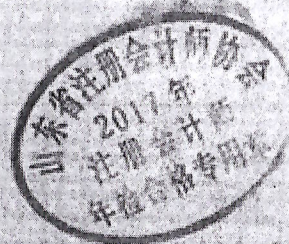 山东省注册会计师协会
2017年
注册会计师
年检合格专用章